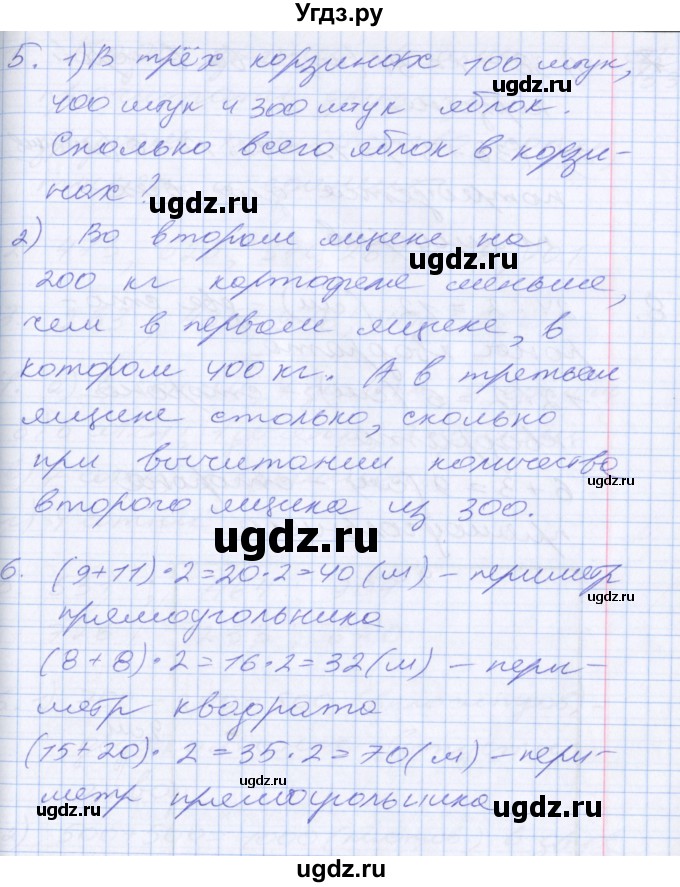 Угдз.ру
5. 1) В трёх корзинах 100 штук,
400 штук и 300 штук яблок.
Сколько всего яблок в корзи-
нах?
ugdz.ru
ugdz.ru
2) Во втором ящике на
200 кг картофеля меньше,
ugdz.ru
чем в первом ящике, в
котором 400 кг. А в третьем
ugdz.ru
ящике столько, сколько
при вычитании количества
ugdz.ru
второго ящика из 300.
ugdz.ru
6. (9+11)·2=20·2=40(м) – периметр
ugdz.ru
прямоугольника
(8+8)·2=16·2=32(м) – пери-
метр квадрата
(15+20)·2=35·2=70(м) – пери-
ugdz.ru
ugdz.ru
метр прямоугольника
ugdz.ru
ugdz.ru